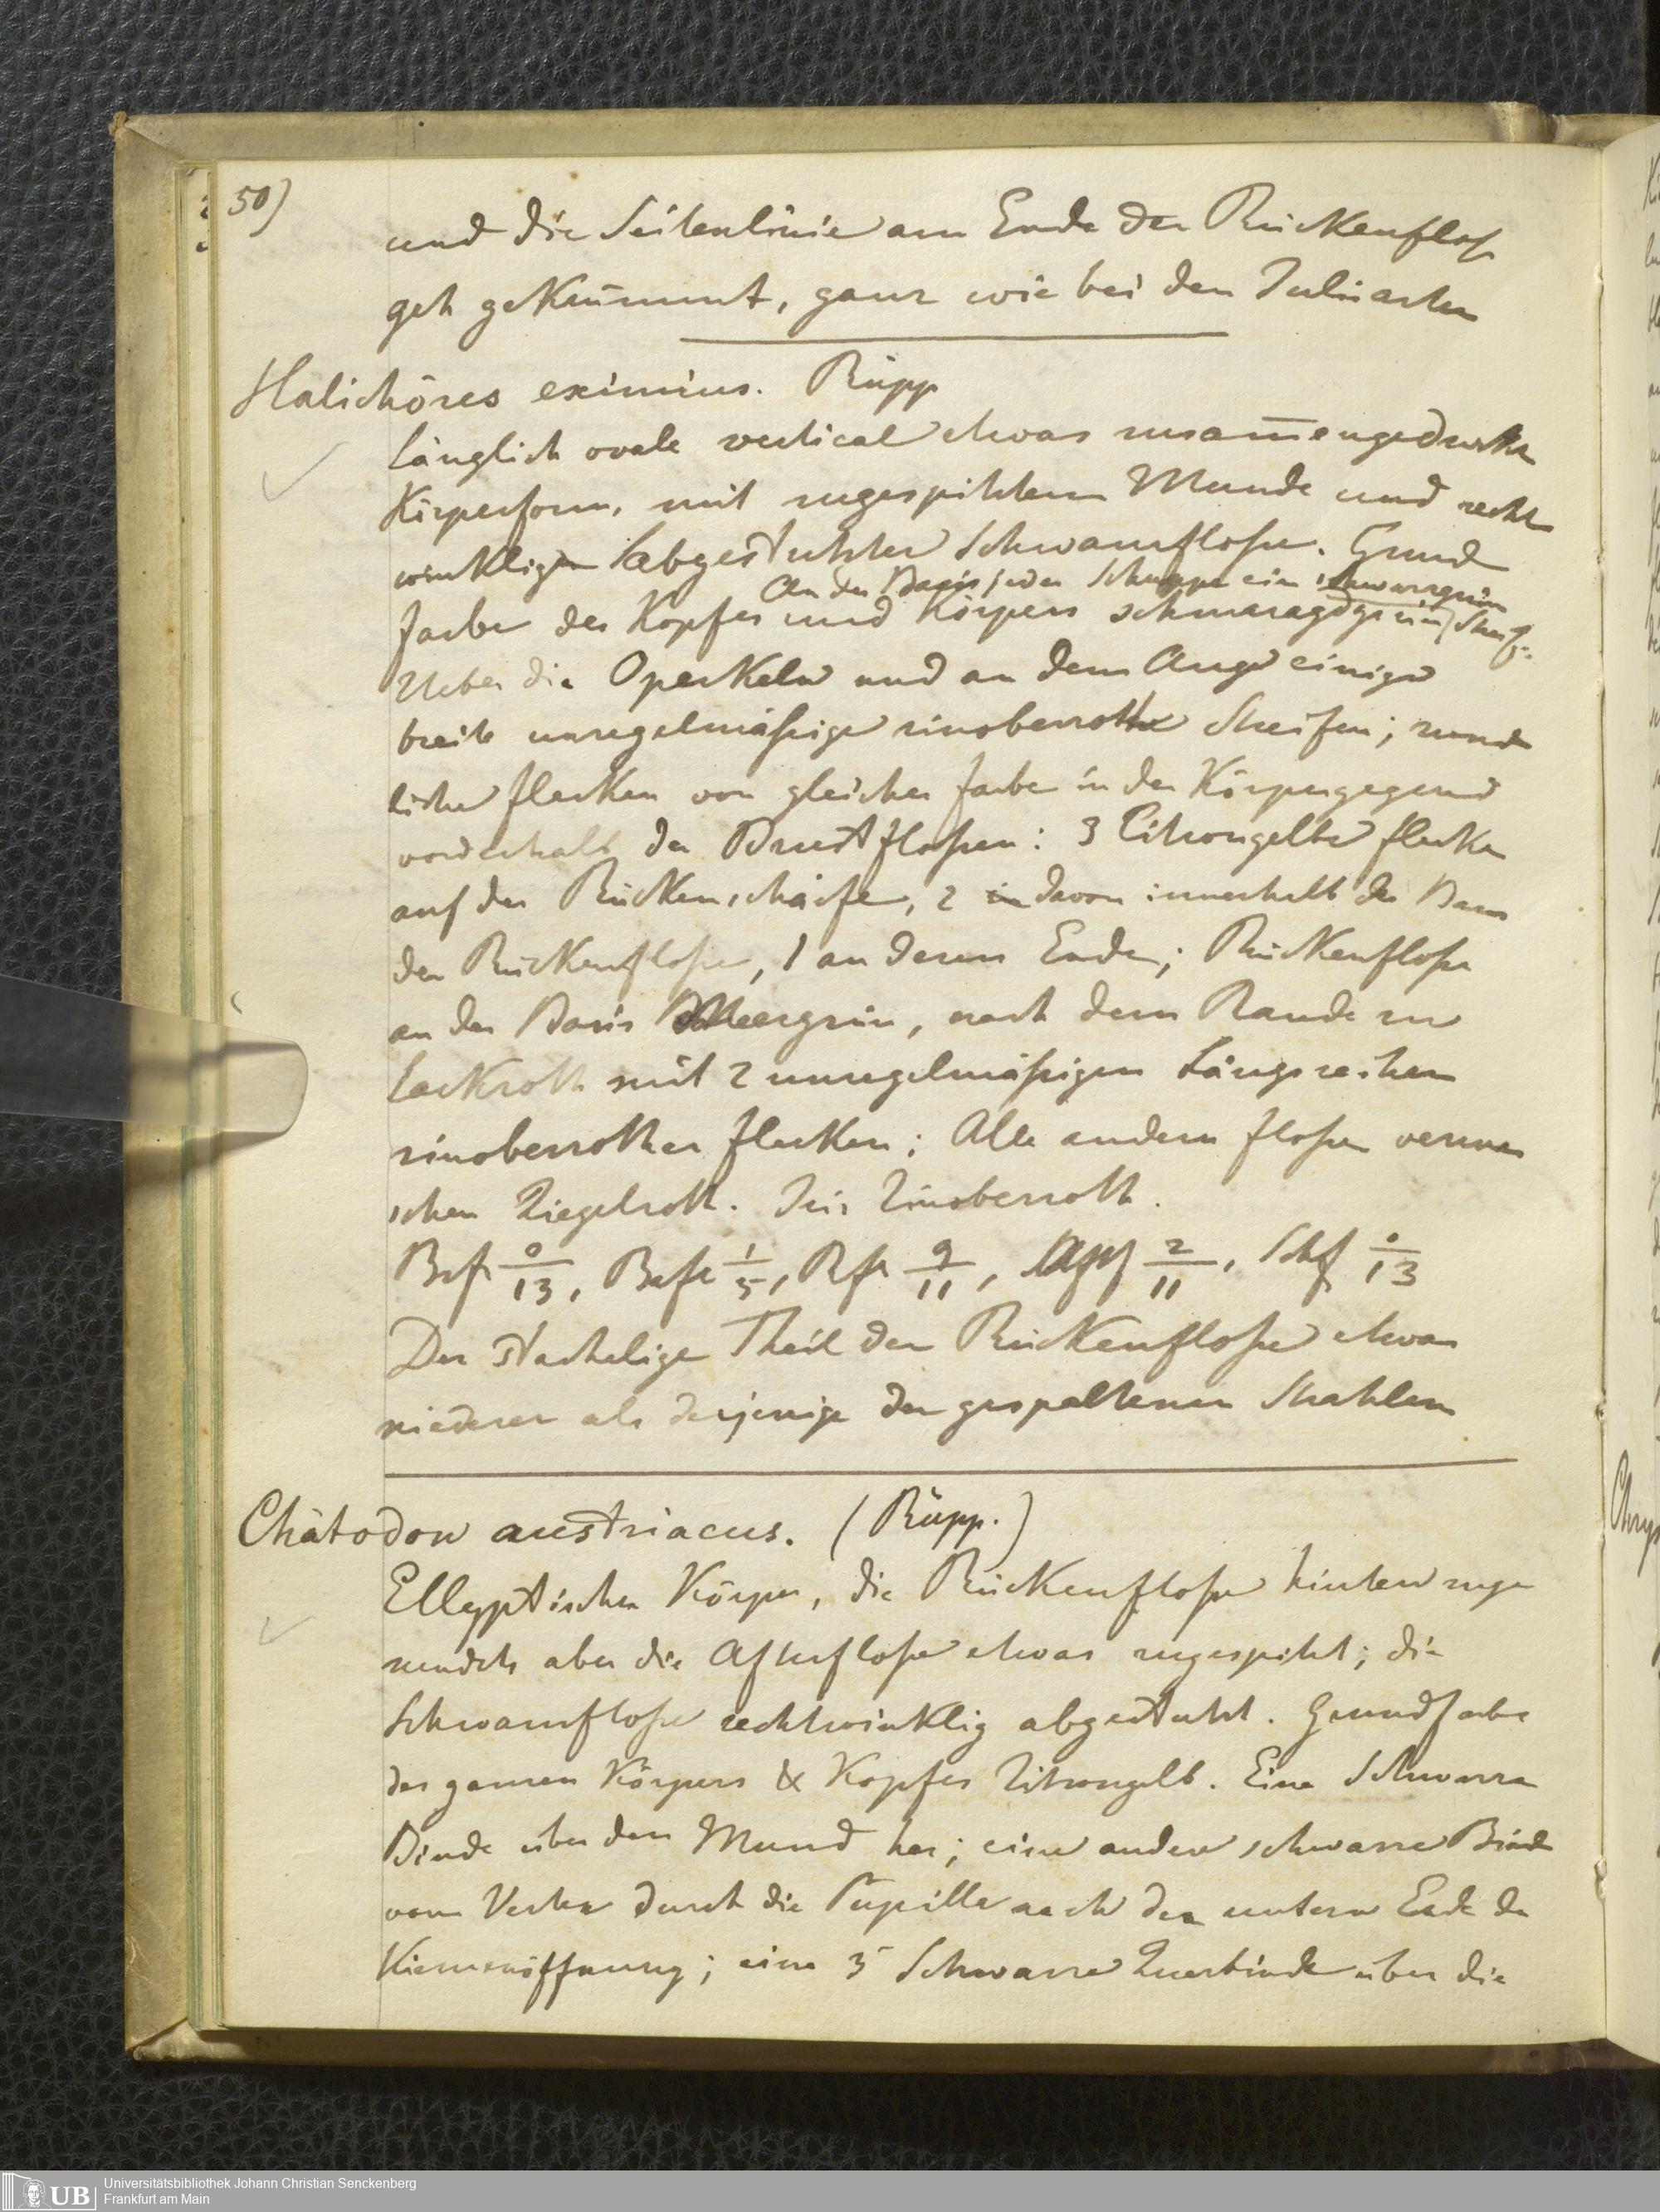 50)
und die Seitenlinie am Ende der Rückenfloße
geh gekrümmt, ganz wie bei den Julisarten
Halichöres eximius. Rüpp
Länglich ovale vertical etwas zusam̅engedrückte
Körperform, mit zugespitztem Munde und recht
winkligen abgestutzter Schwanzfloße. Grund
An der Basis jeder Schuppe ein schwarzgrün
farbe des Kopfes und Körpers schmaragdgrün Streif.
Ueber die Operkeln und an dem Auge einige
breite unregelmäßige zinoberrothe Streifen; rund
liche Flecken von gleicher Farbe in der Körpergegend
vorderhalb der Brustfloßen: 3 Citrongelbe Flecken
auf der Rückenschärfe, 2 in davon innerhalb der Basis
der Rückenfloße, 1 an deren Ende; Rückenfloße
an der Basis Meergrün, nach dem Rande zu
Lackroth mit 2 unregelmäßigen Längsreihen
zinoberrother Flecken; Alle andern Floßen verwa
schen Ziegelroth. Iris Zinoberroth.
Brf 0/13, Bafl 1/5, Rfl 9/11, Afl 2/11, Schf 0/13
Der stachelige Theil der Rückenfloße etwas
niederer als derjenige der gespaltenen Strahlen
Chätodon austriacus. (Rüpp.)
Ellyptischer Körper, die Rückenfloße hinten zuge
rundet aber die Afterfloße etwas zugespitzt; die
Schwanzfloße rechtwinklig abgestutzt. Grundfarbe
des ganzen Körpers & Kopfes Zitrongelb. Eine Schwarze
Binde über den Mund her; eine andere schwarze Binde
vom Vertex durch die Pupille nach dem untern Ende der
Kiemenöffnung; eine 3te Schwarze Querbinde über die
Universitätsbibliothek Johann Christian Senckenberg
Frankfurt am Main
UB